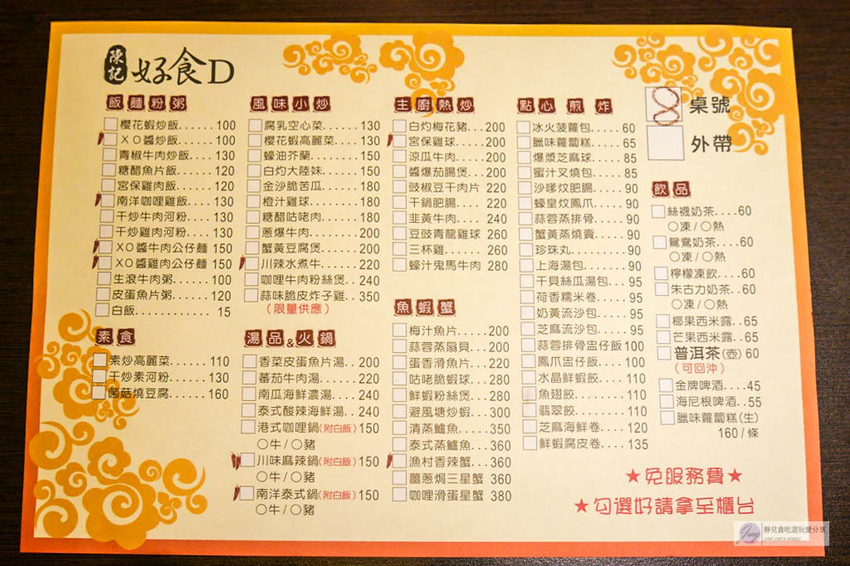 陳記 好食D
飯麵粉粥
櫻花蝦炒飯......100
XO醬炒飯.....100
青椒牛肉炒飯...130
糖醋魚片飯.....120
宮保雞肉飯.....120
南洋咖哩雞飯...130
干炒牛肉河粉...130
干炒雞肉河粉...130
XO醬牛肉公仔麵 150
XO醬雞肉公仔麵 150
生滾牛肉粥.....100
皮蛋魚片粥.....120
白飯............15
素食
素炒高麗菜.....110
干炒素河粉.....130
菌菇燒豆腐.....160
風味小炒
腐乳空心菜.....130
櫻花蝦高麗菜...130
蠔油芥蘭.......150
白灼大陸妹.....150
金沙脆苦瓜.....180
橙汁雞球.......180
糖醋咕咾肉.....180
蔥爆牛肉.......200
蟹黃豆腐煲.....200
川辣水煮牛.....220
咖哩牛肉粉絲煲..240
蒜味脆皮炸子雞..350
(限量供應)
湯品&火鍋
香菜皮蛋魚片湯..200
蕃茄牛肉湯.....220
南瓜海鮮濃湯...240
泰式酸辣海鮮湯..240
港式咖哩鍋(附白飯)150
○牛/○豬
川味麻辣鍋(附白飯)150
○牛/○豬
南洋泰式鍋(附白飯)150
○牛/○豬
主廚熱炒
白灼梅花豬...200
宮保雞球.....200
涼瓜牛肉.....200
醬爆茄腸煲...200
豉椒豆干肉片 220
干鍋肥腸.....220
韭黃牛肉.....240
豆豉青龍雞球 260
三杯雞.......260
蠔汁鬼馬牛肉 280
魚蝦蟹
梅汁魚片.....200
蒜蓉蒸扇貝...200
蛋香滑魚片...220
咕咾脆蝦球...280
鮮蝦粉絲煲...280
避風塘炒蝦...300
清蒸鱸魚.....350
泰式蒸鱸魚...360
漁村香辣蟹...360
薑蔥焗三星蟹 360
咖哩滑蛋星蟹 380
點心 煎 炸
冰火菠蘿包.....60
臘味蘿蔔糕.....65
爆漿芝麻球.....85
蜜汁叉燒包.....85
沙嗲炆肥腸.....90
蠔皇炆鳳爪.....90
蒜蓉蒸排骨.....90
蟹黃蒸燒賣.....90
珍珠丸.........90
上海湯包.......90
干貝絲瓜湯包...95
荷香糯米卷.....95
奶黃流沙包.....95
芝麻流沙包.....95
蒜蓉排骨盅仔飯100
鳳爪盅仔飯....100
水晶鮮蝦餃....110
魚翅餃........110
翡翠餃........110
芝麻海鮮卷....120
鮮蝦腐皮卷....135
8 桌號
外帶
飲品
絲襪奶茶....60
○凍/○熱
鴛鴦奶茶....60
○凍/○熱
檸檬凍飲....60
朱古力奶茶..60
○凍/○熱
椰果西米露..65
芒果西米露..65
普洱茶(壺)60
(可回沖)
金牌啤酒....45
海尼根啤酒..55
臘味蘿蔔糕(生)
160/條
★免服務費★
★勾選好請拿至櫃台
靜兒貪吃遊玩愛分享